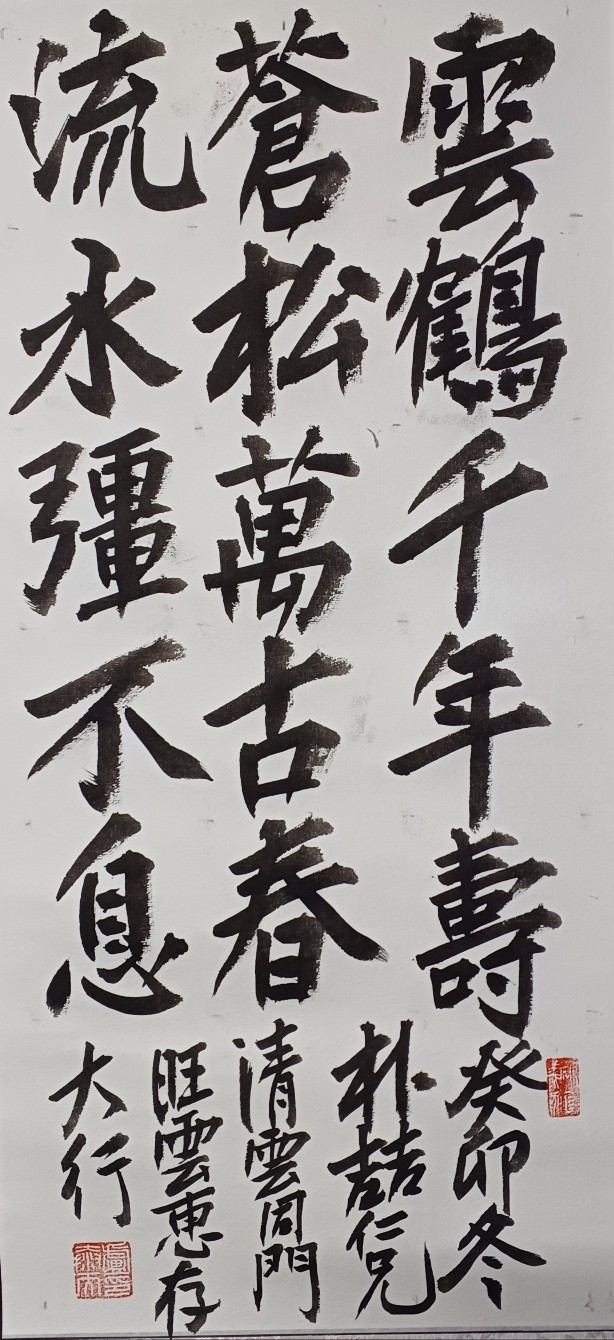 雲鶴千年壽
蒼松萬古春
流水彊不息
癸卯冬
朴喆仁兄
清雲周門
旺雲惠存
大行